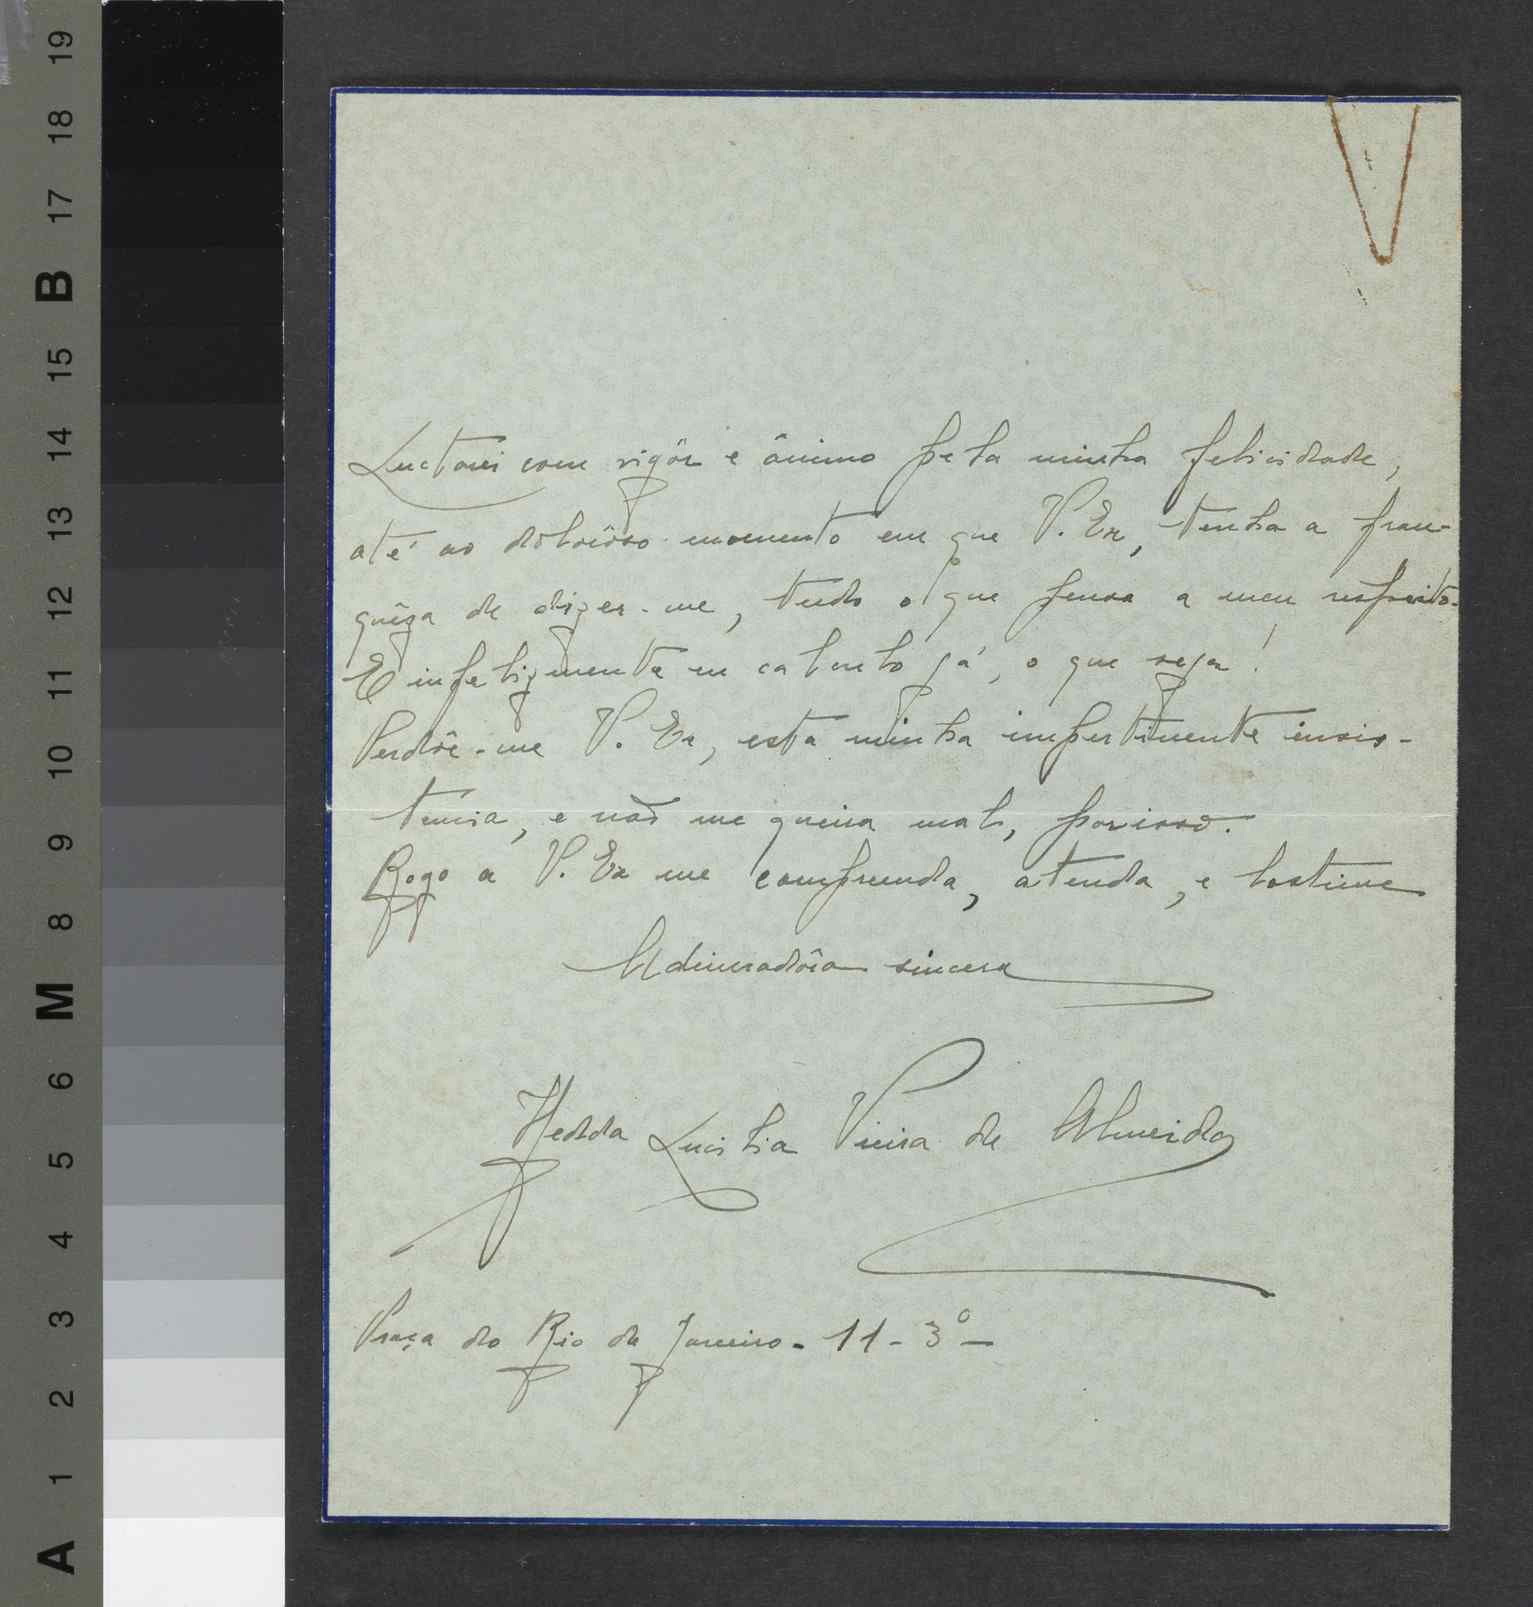 19
18
17
B
15
14
13
12
11
10
9
8
M
6
5
4
3
2
1
A
Luctarei com vigôr e ânimo pela minha felicidade,
até ao dolorôso momento em que V. Ex, tenha a fran-
quêza de dizer-me, tudo o que pensa a meu respeito.
E infelizmente eu calculo já, o que seja!
Perdôe-me V. Ex, esta minha impertinente insis-
tencia, e não me queira mal, por isso.
Rogo a V. Ex me compreenda, atenda, e lastime
Admiradôra sincera
Hedda Lucilia Vieira de Almeida
Praça do Rio de Janeiro - 11 - 3º -